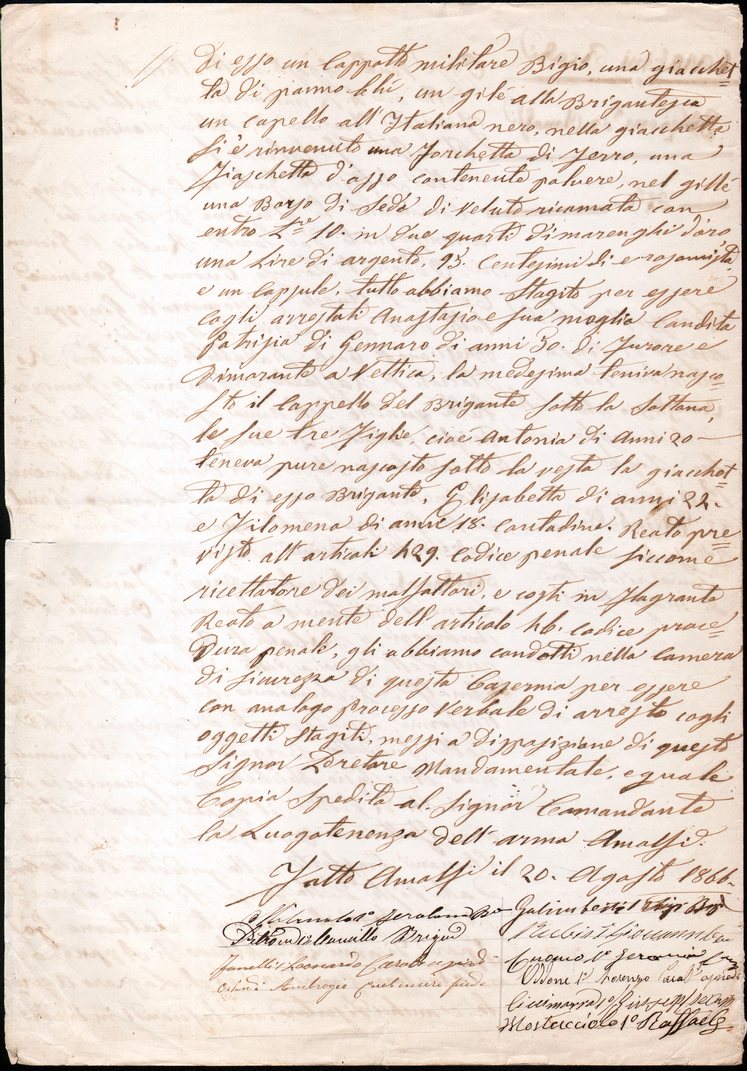 // Di esso un Cappotto militare Bigio, una giacchet=
ta di panno blù, un gilé alla Brigantesca
un capello all'Italiana nero, nella giacchetta
si è rinvenuto una Forchetta di Ferro, una
Fiaschetta d'osso contenente polvere, nel gillé
una Borsa di Seda di Veluto ricamata con
entro L.re 10. in due quarti di marenghi d'oro
una Lire di argento, 95. Centesimi di
e un Capsule, tutto abbiamo Stagito per essere
cogli arrestati Anastasio e sua moglia Candita
Patrizia di Gennaro di anni 50. di Furore e
Dimorante a Vettica, la medesima teniva nasco=
sto il Cappello del Brigante sotto la Sottana,
le sue tre Figlie, cioe Antonia di Anni 20
teneva pure nascosto sotto la vesta la giacchet=
ta di esso Brigante, Elisabetta di anni 22.
e Filomena di anni 18. Contadine. Reato pre=
visto all'articoli 429. Codice penale siccome
ricettatore dei malfattori, e cogti in Flagrante
Reato a mente dell'articolo 46. Codice proce=
Dura penale, gli abbiamo condotti nella Camera
di Sicurezza di questa Caserma per essere
con analogo processo Verbale di arresto cogli
oggetti Stagiti, messi a Disposizione di questo
Signor Pretore Mandamentale, e quale
Copia Spedita al Signor Comandante
la Luogotenenza dell'arma Amalfi.
Fatto Amalfi il 20. Agosto 1866.
1° Gerolamo
Galimberti
Brigad
Cuomo 1°
Fanelli Leonardo Carab a pied
Oddone 1° Lorenzo Carab a piedi
Ambrogio pied.
1° Giuseppe
Mostacciolo 1° Raffaele